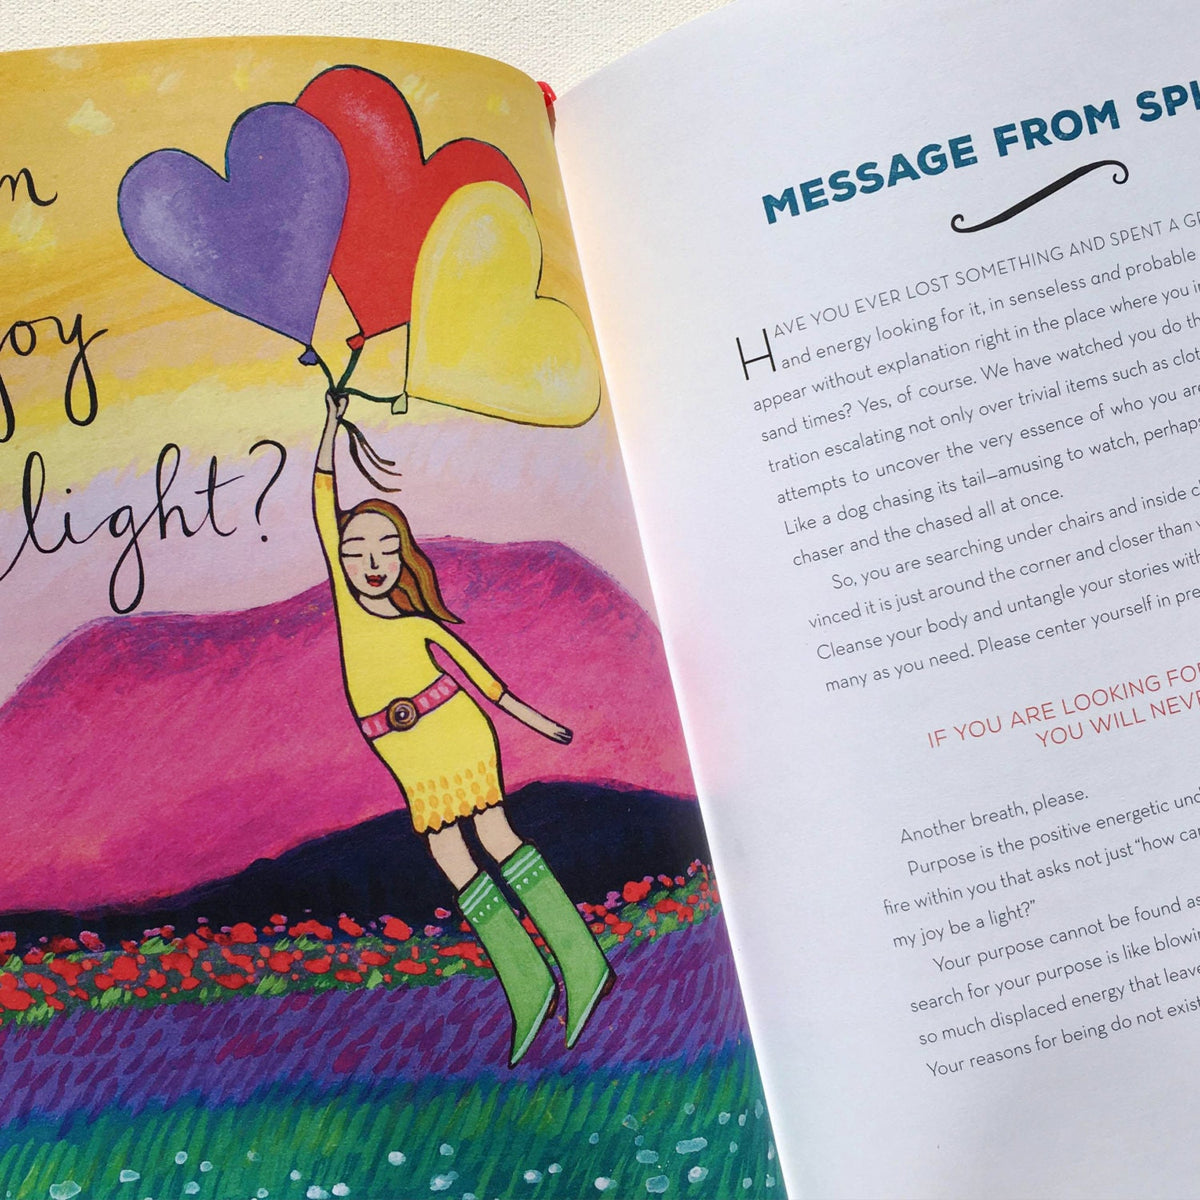 n
joy
light?
MESSAGE FROM SPI
HAVE YOU EVER LOST SOMETHING AND SPENT A G
and energy looking for it, in senseless and probable
appear without explanation right in the place where you i
sand times? Yes, of course. We have watched you do th
tration escalating not only over trivial items such as clot
attempts to uncover the very essence of who you are
Like a dog chasing its tail—amusing to watch, perhaps
chaser and the chased all at once.
So, you are searching under chairs and inside c
vinced it is just around the corner and closer than
Cleanse your body and untangle your stories with
many as you need. Please center yourself in pre
IF YOU ARE LOOKING FO
YOU WILL NEV
Another breath, please.
Purpose is the positive energetic und
fire within you that asks not just “how can
my joy be a light?”
Your purpose cannot be found as
search for your purpose is like blowin
so much displaced energy that leave
Your reasons for being do not exist